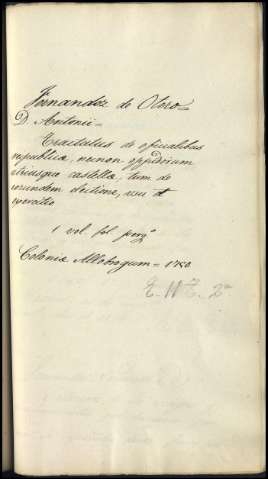 Fernandez de Otero=
D. Antonii=
Tractatus de oficialibus
republica, necnon oppidorum
utriusque castella, tum de
eorundem electione, usu et
exercitio
1 vol. fol. perg.º
Colonia Allobrogum= 1750